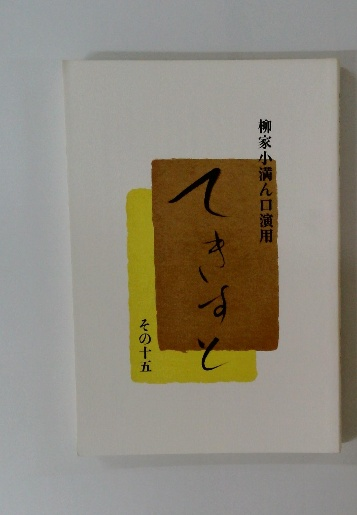 柳家小満ん口演用
てきすと
その十五